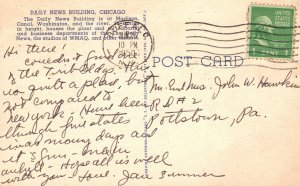 DAILY NEWS BUILDING, CHICAGO
The Daily News Building is at Madison,
Canal, Washington, and the river.
in height, houses the plant and
and business departments of The Daily
News, the studios of WMAQ, and
10 PM
POST CARD
Hi there
couldn't find
of the First Bldg.
quite a place, but
not compared to
new york. Have been
through five states
in as many days and
it's fun
Hope all is well
with you. Love. Jan Sumner
Mr. and Mrs. John W. Hawkins
R D # 2
Pottstown, Pa.